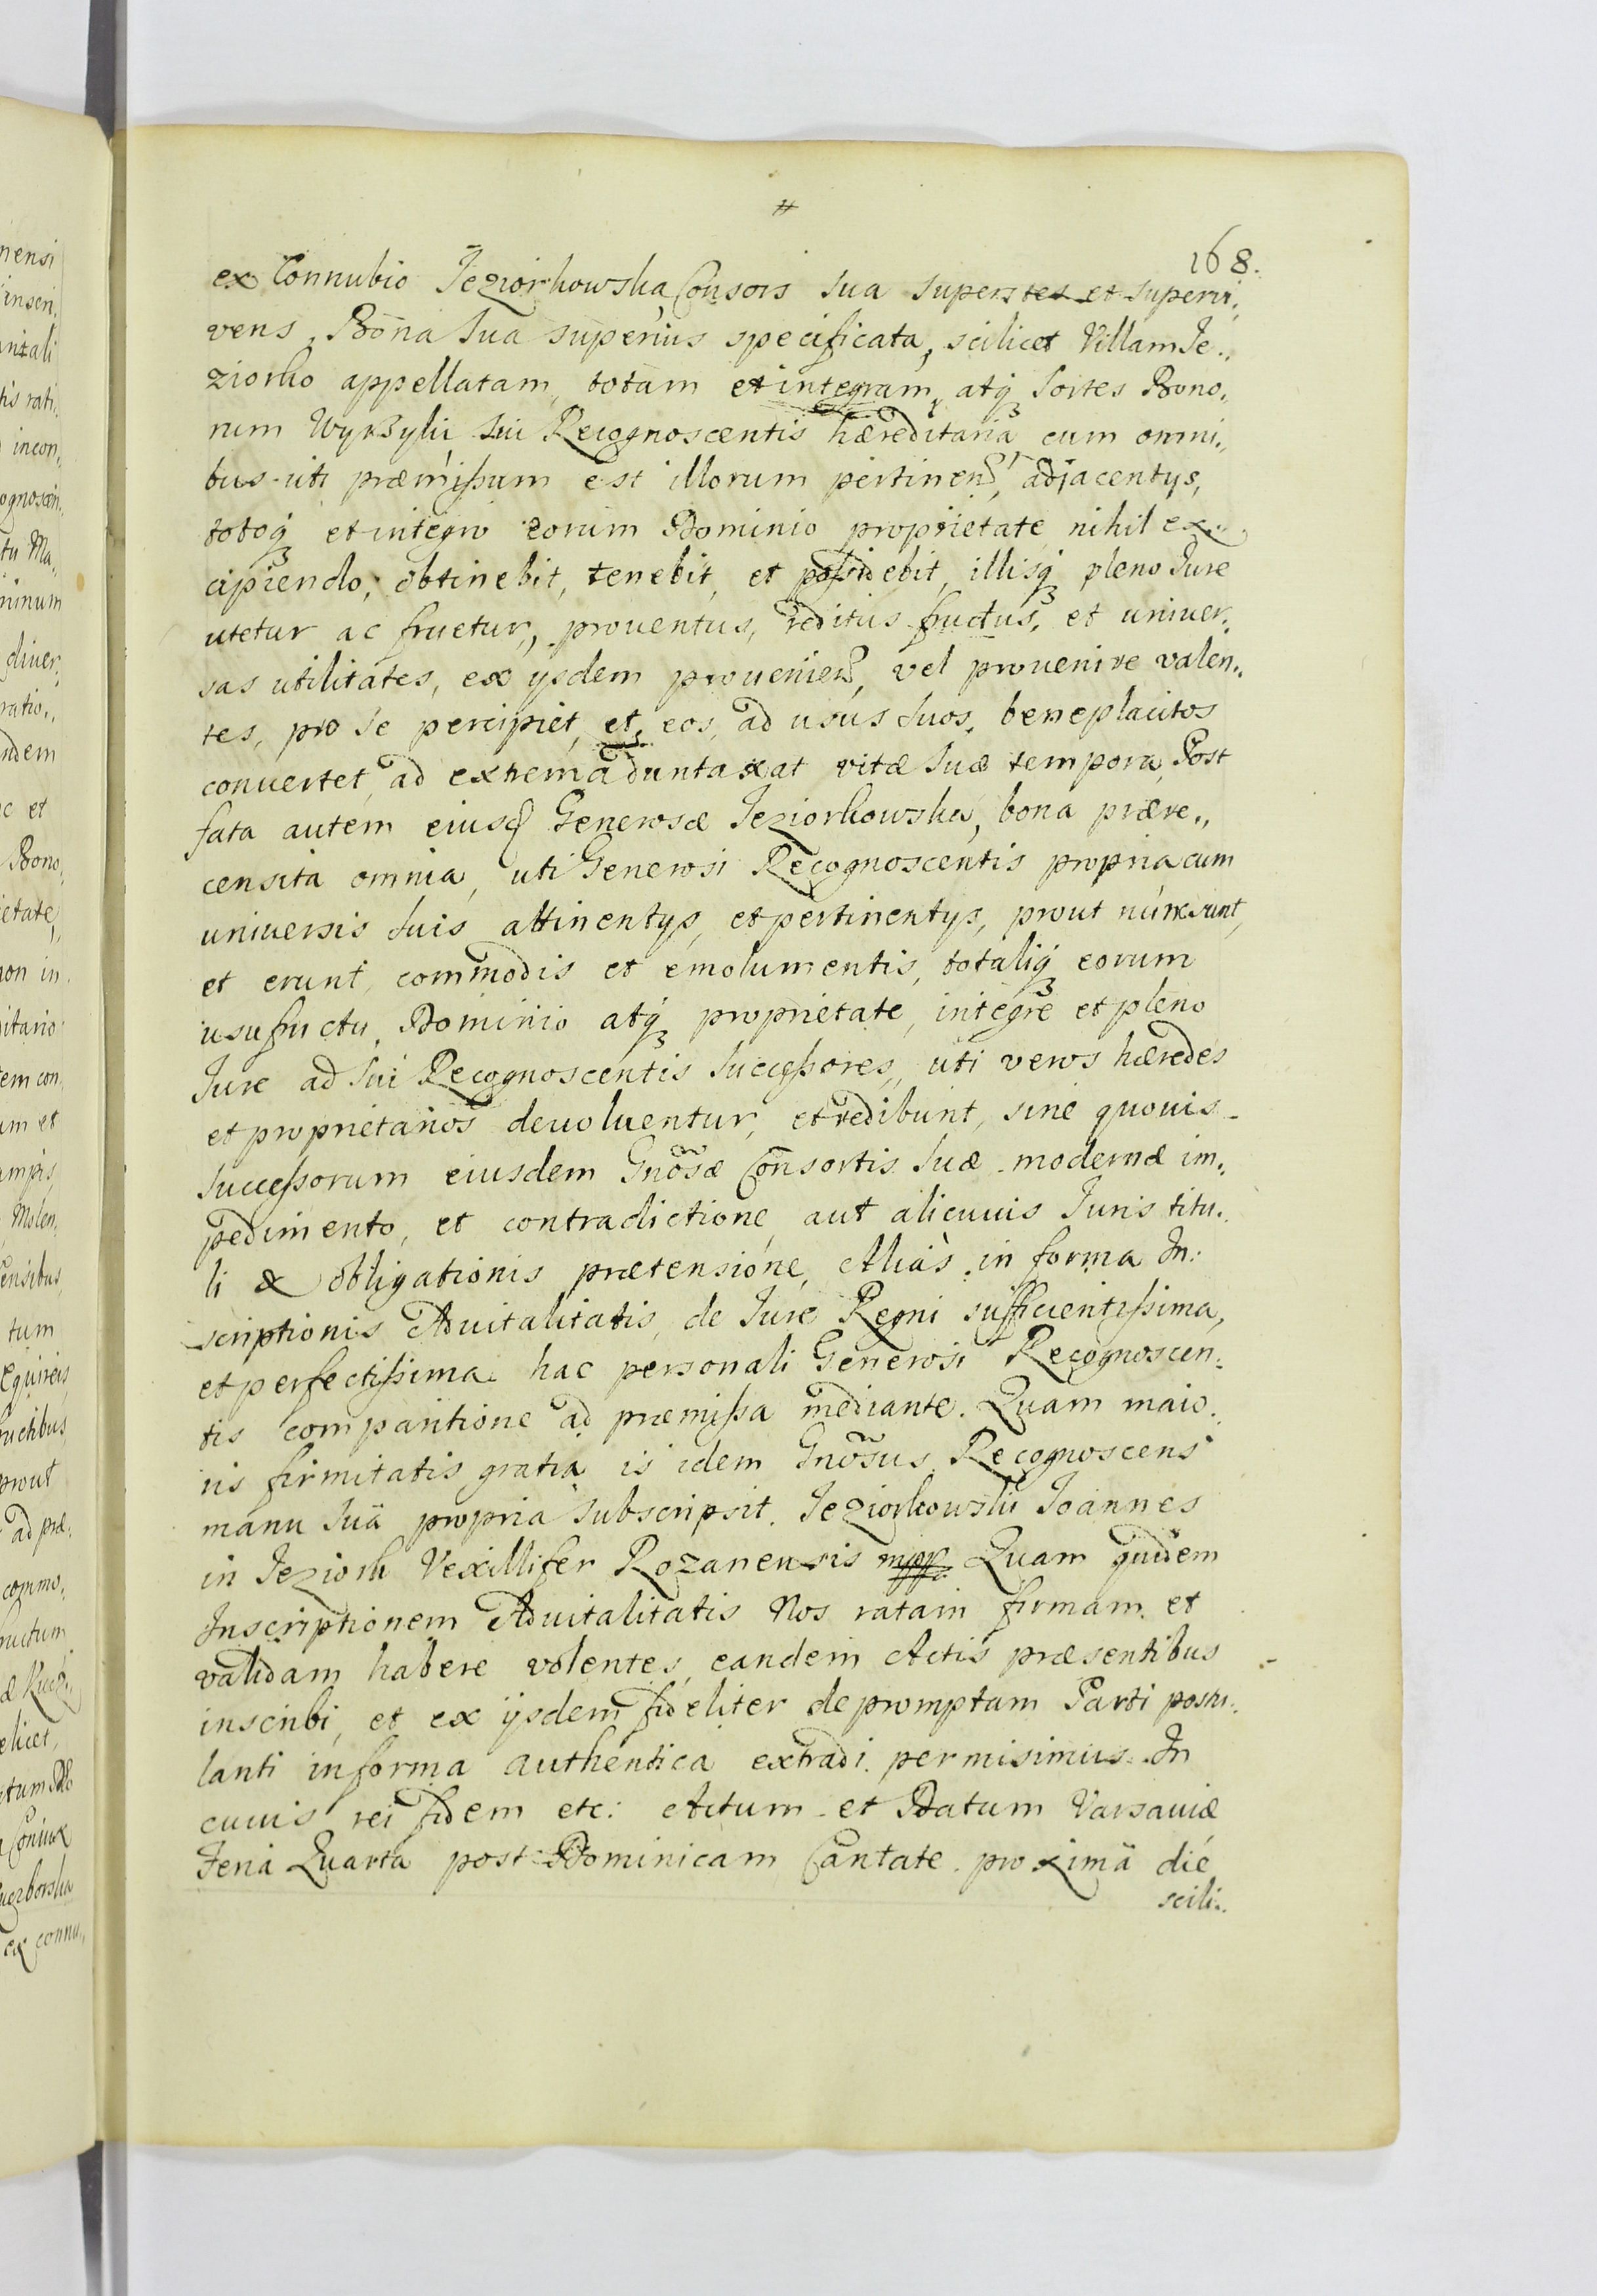 168.
ex Connubio Jeziorkowska Consors Sua Superstes et Supervi,,
vens, Bona Sua Superius specificata, scilicet Villam Je,,
ziorko appellatam, totam et integram, atq̨ Sortes Bono,,
rum Wyrzyki Sui Recognoscentis hæreditaria cum omni,,
bus uti præmissum est illorum pertinen, adjacentys,
totoq̨ et integro eorum Dominio proprietate, nihil ex,,
cipiendo, obtinebit, tenebit, et possidebit, illisq̨ pleno Jure
utetur ac fruetur, prouentus, reditus fructus, et uniuer,,
sas utilitates, ex ysdem prouenien, vel prouenire valen,,
tes, pro se percipiet, et eos, ad usus Suos, beneplacitos
conuertet, ad extrema duntaxat vitæ Suæ tempora, Post
fata autem eiusd Generosæ Jeziorkowska, bona prære,,
censita omnia, uti Generosi Recognoscentis propria cum
uniuersis Suis attinentys, et pertinentys, prout nunc sunt,
et erunt, commodis et emolumentis, totaliq̨ eorum
usufructu, Dominio atq̨ proprietate, integre et pleno
Jure ad Sui Recognoscentis Successores, uti veros hæredes
et proprietarios deuoluentur, et redibunt, sine quouis
Successorum eiusdem Gnosæ Consortis Suæ modernæ im,,
pedimento, et contradictione, aut alicuius Juris titu,,
li & obligationis prætensione, Alias in forma In:
scriptionis Aduitalitatis, de Jure Regni sufficientissima,
et perfectissima hac personali Generosi Recognoscen,,
tis comparitione ad præmissa mediante. Quam maio,,
ris firmitatis gratia is idem Gnosus Recognoscens
manu Suä propria Subscripsit. Jeziorkowski Joannes
in Jeziorki Vexillifer Rozanensis mpp. Quam quidem
Inscriptionem Aduitalitatis Nos ratam firmam et
validam habere volentes, eandem Actis præsentibus
inscribi, et ex ysdem fideliter depromptam Parti postu,,
lanti in forma authentica extradi permisimus. In
cuius rei fidem etc: Actum et Datum Varsauiæ
Feria Quarta post Dominicam Cantate proximä die
scili,,